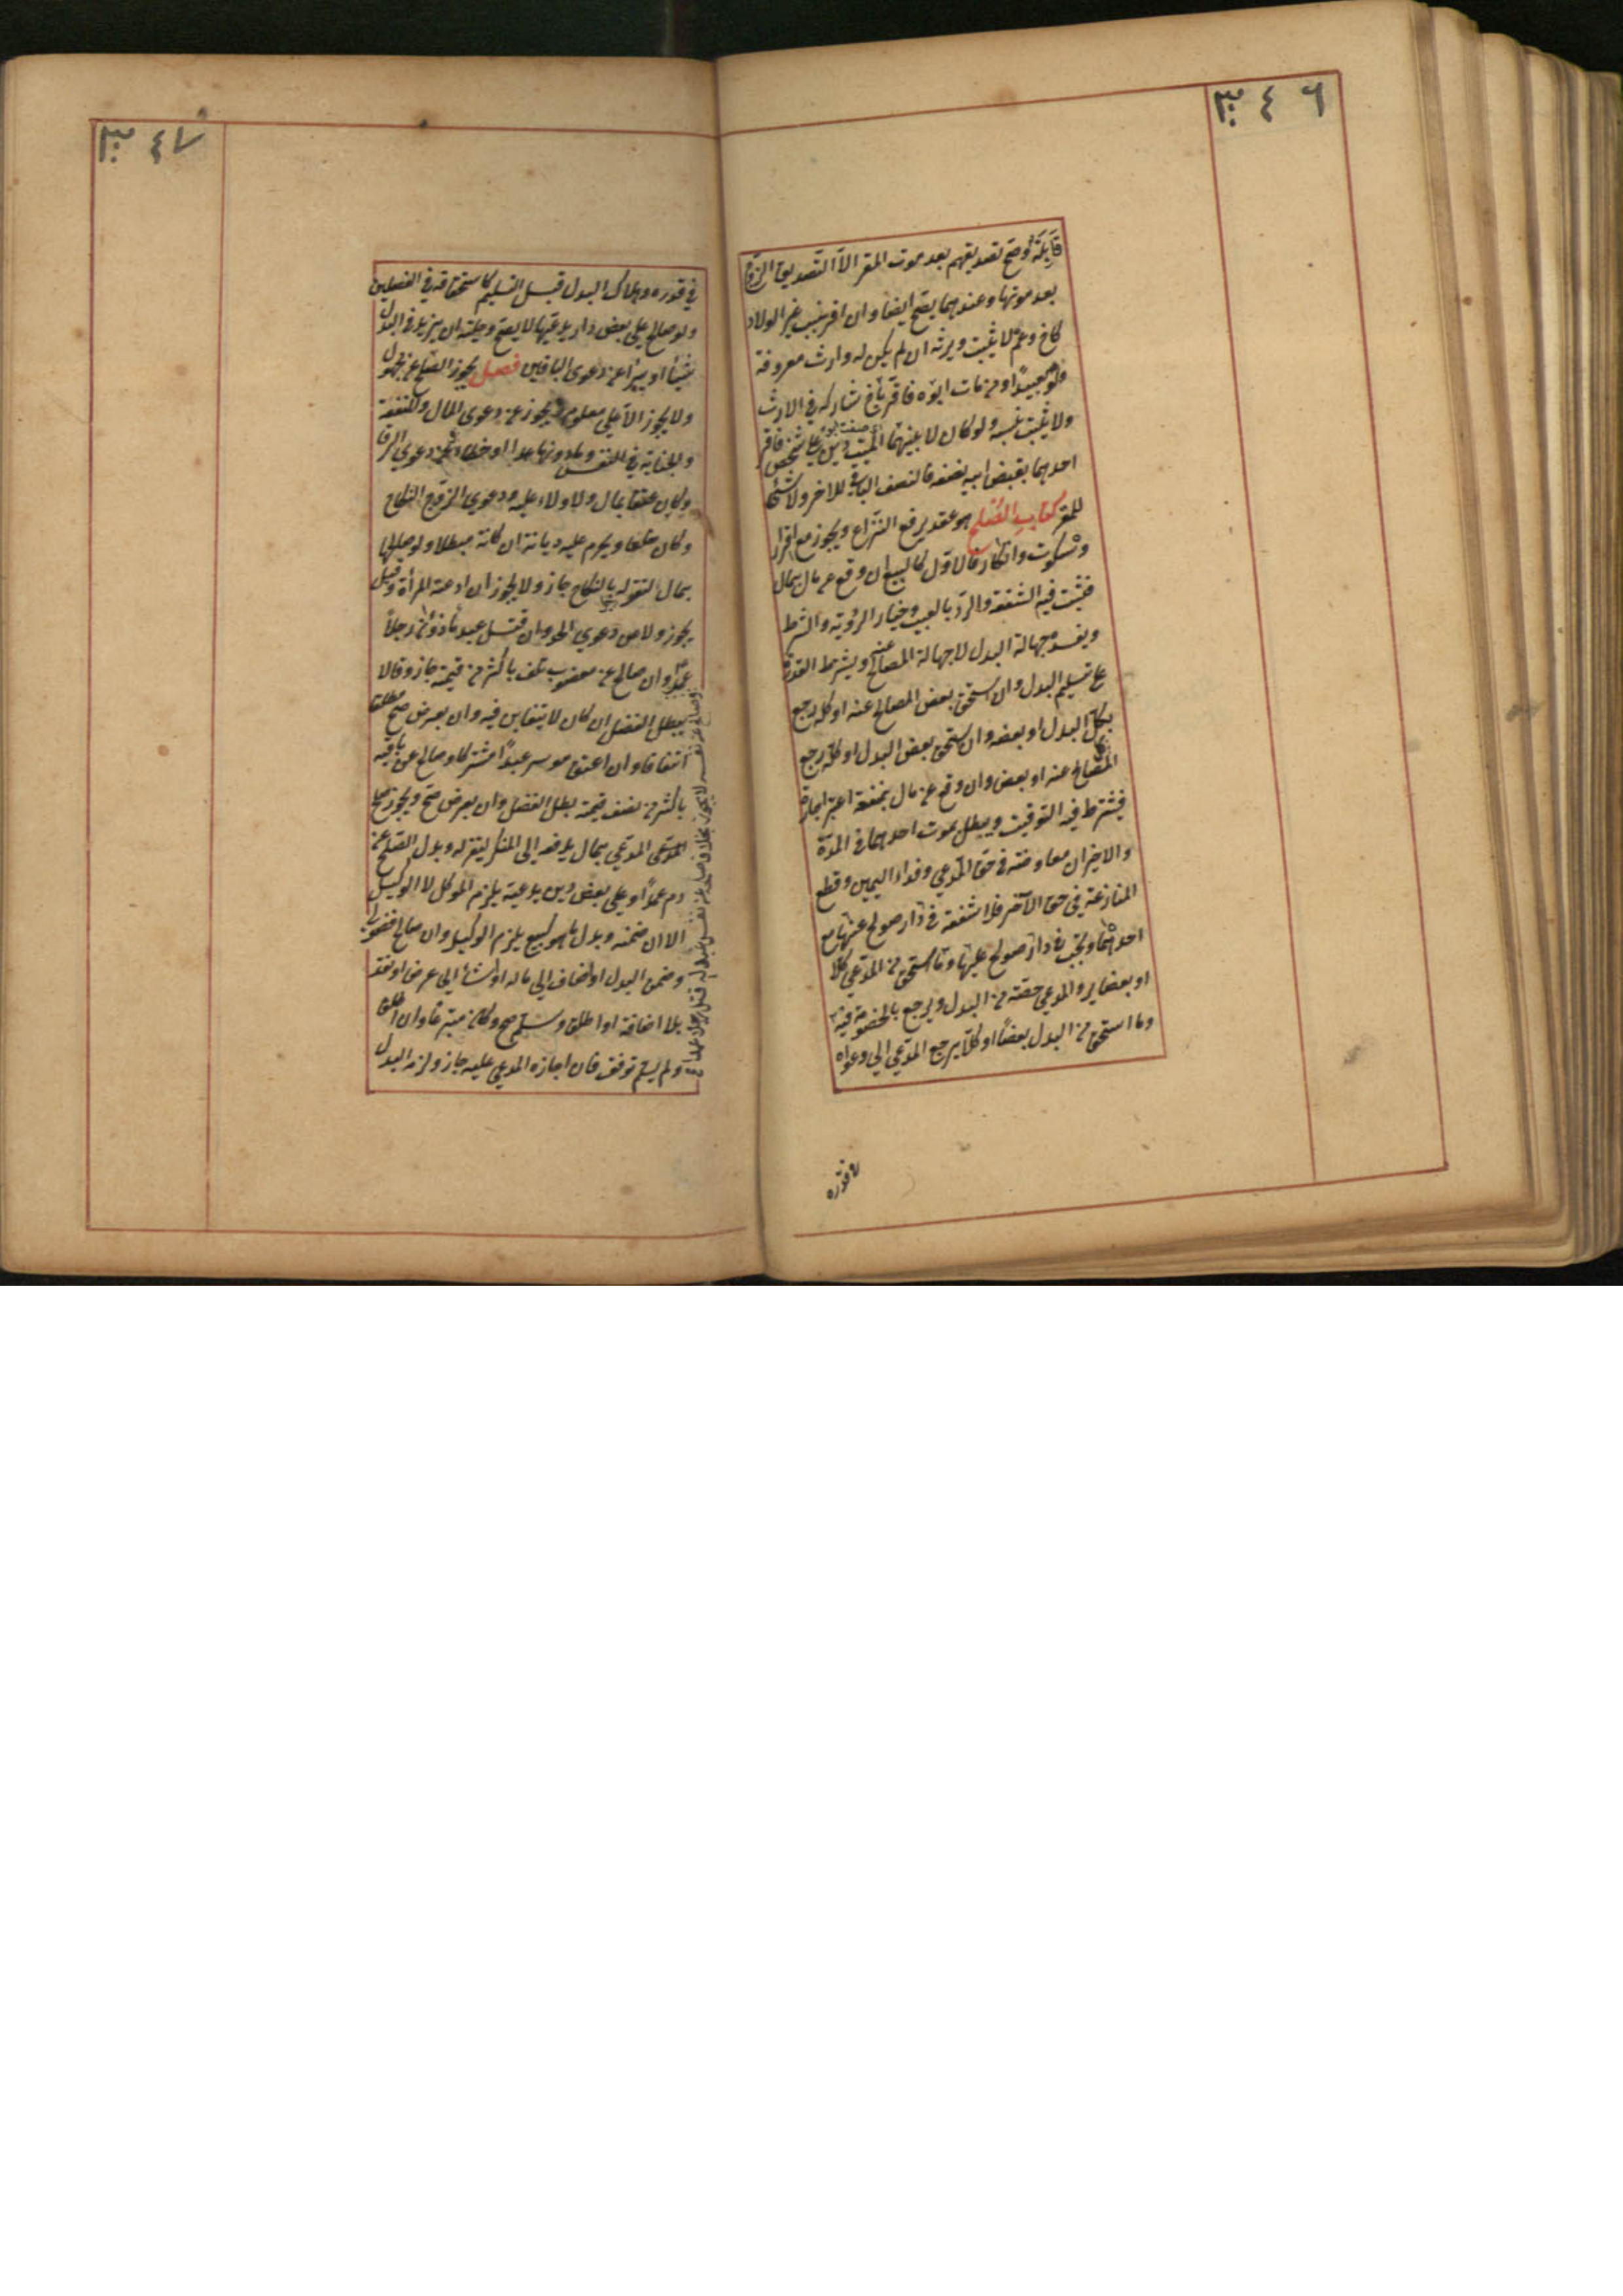 ٣٤٦
قابلة وصح تصديقهم بعد موت المقر الا التصديق الزوج
بعد موتها وعندهما يصح ايضا وان اقر بنسب غير الولاد
كاخ وعم لا يثبت ويرثه ان لم يكن له وارث معروفة
ولو بعيدا ومن مات ابوه فاقر باخ شاركه في الارث
ولا يثبت نسبه ولو كان لابنيهما الميت دين على شخص فاقر
احدهما بقبض ابيه نصفه فالنصف الباقي للاخر ولا شئ
للمقر كتاب الصلح هو عقد يرفع النزاع ويجوز مع اقرار
وسكوت وانكار فالاول كالبيع ان وقع عن مال بمال
فيثبت فيه الشفعة والرد بالعيب وخيار الرؤية والشرط
ويفسده جهالة البدل لا جهالة المصالح عنه ويشترط القدرة
على تسليم البدل وان استحق بعض المصالح عنه او كله رجع
بكل البدل او بعضه وان استحق بعض البدل او كله رجع
بكل المصالح عنه او بعض وان وقع عن مال بمنفعة اعتبر اجارة
فيشترط فيه التوقيت ويبطل بموت احدهما في المدة
والاخيران معاوضة في حق المدعي وفداء اليمين وقطع
المنازعة في حق الآخر فلا شفعة في دار صولح عنها مع
احدهما وتجب في دار صولح عليها وما استحق من المدعي كلا
او بعضا يرد المدعي حصته من البدل ويرجع بالخصومة فيه
وما استحق من البدل بعضا او كلا يرجع المدعي الى دعواه
في قدره
٣٤٧
في قدره وهلاك البدل قبل التسليم كاستحقاقه في الفصلين
ولو صالح على بعض دار يدعيها لا يصح وحيلته ان يزيد في البدل
شيئا او يبرأ عن دعوى الباقين فصل يجوز الصلح عن مجهول
ولا يجوز الا على معلوم ويجوز عن دعوى المال والمنفعة
والجناية في النفس وما دونها عمدا او خطاء وعن دعوى الرق
وكان عتقا بمال ولا ولاء عليه ودعوى الزوج النكاح
وكان خلعا ويحرم عليه ديانة ان كانة مبطلا ولو صالحها
بمال لتقر له بالنكاح جاز ولا يجوز ان ادعته المرأة وقيل
يجوز ولا من دعوى الحد وان قتل عبد ماذون رجلا
عمدا وان صالح عن مغصوب تلف باكثر من قيمته جاز وقالا
يبطل الفضل ان كان لا يتغابن فيه وان بعرض صح مطلقا
اتفاقا وان اعتق موسر عبدا مشتركا وصالح عن باقيه
باكثر من نصف قيمته بطل الفضل وان بعرض صح ويجوز صلح
المدعي المدعي بمال يدفعه الى المنكر ليقر له وبدل الصلح عن
دم عمدا وعلى بعض دين يدعيه يلزم الموكل لا الوكيل
الا ان ضمنه وبدل ما هو كبيع يلزم الوكيل وان صالح فضولي
وضمن البدل او اضاف الى ماله او اشاء الى عرض او نقد
بلا اضافة او اطلق وسلم صح وكان متبرعا وان اطلق
ولم يسلم توقف فان اجازه المدعي عليه جاز ولزمه البدل